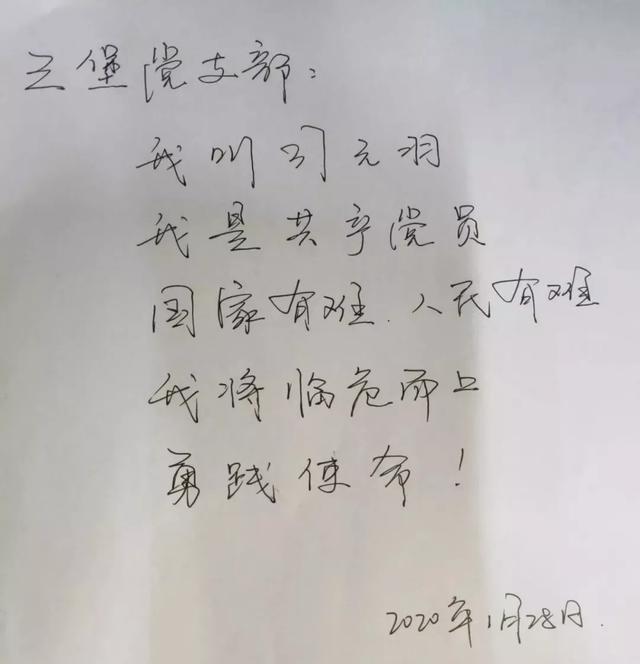 三堡党支部：
我叫司元羽
我是共产党员
国家有难．人民有难
我将临危而上
勇践使命！
2020年1月28日．